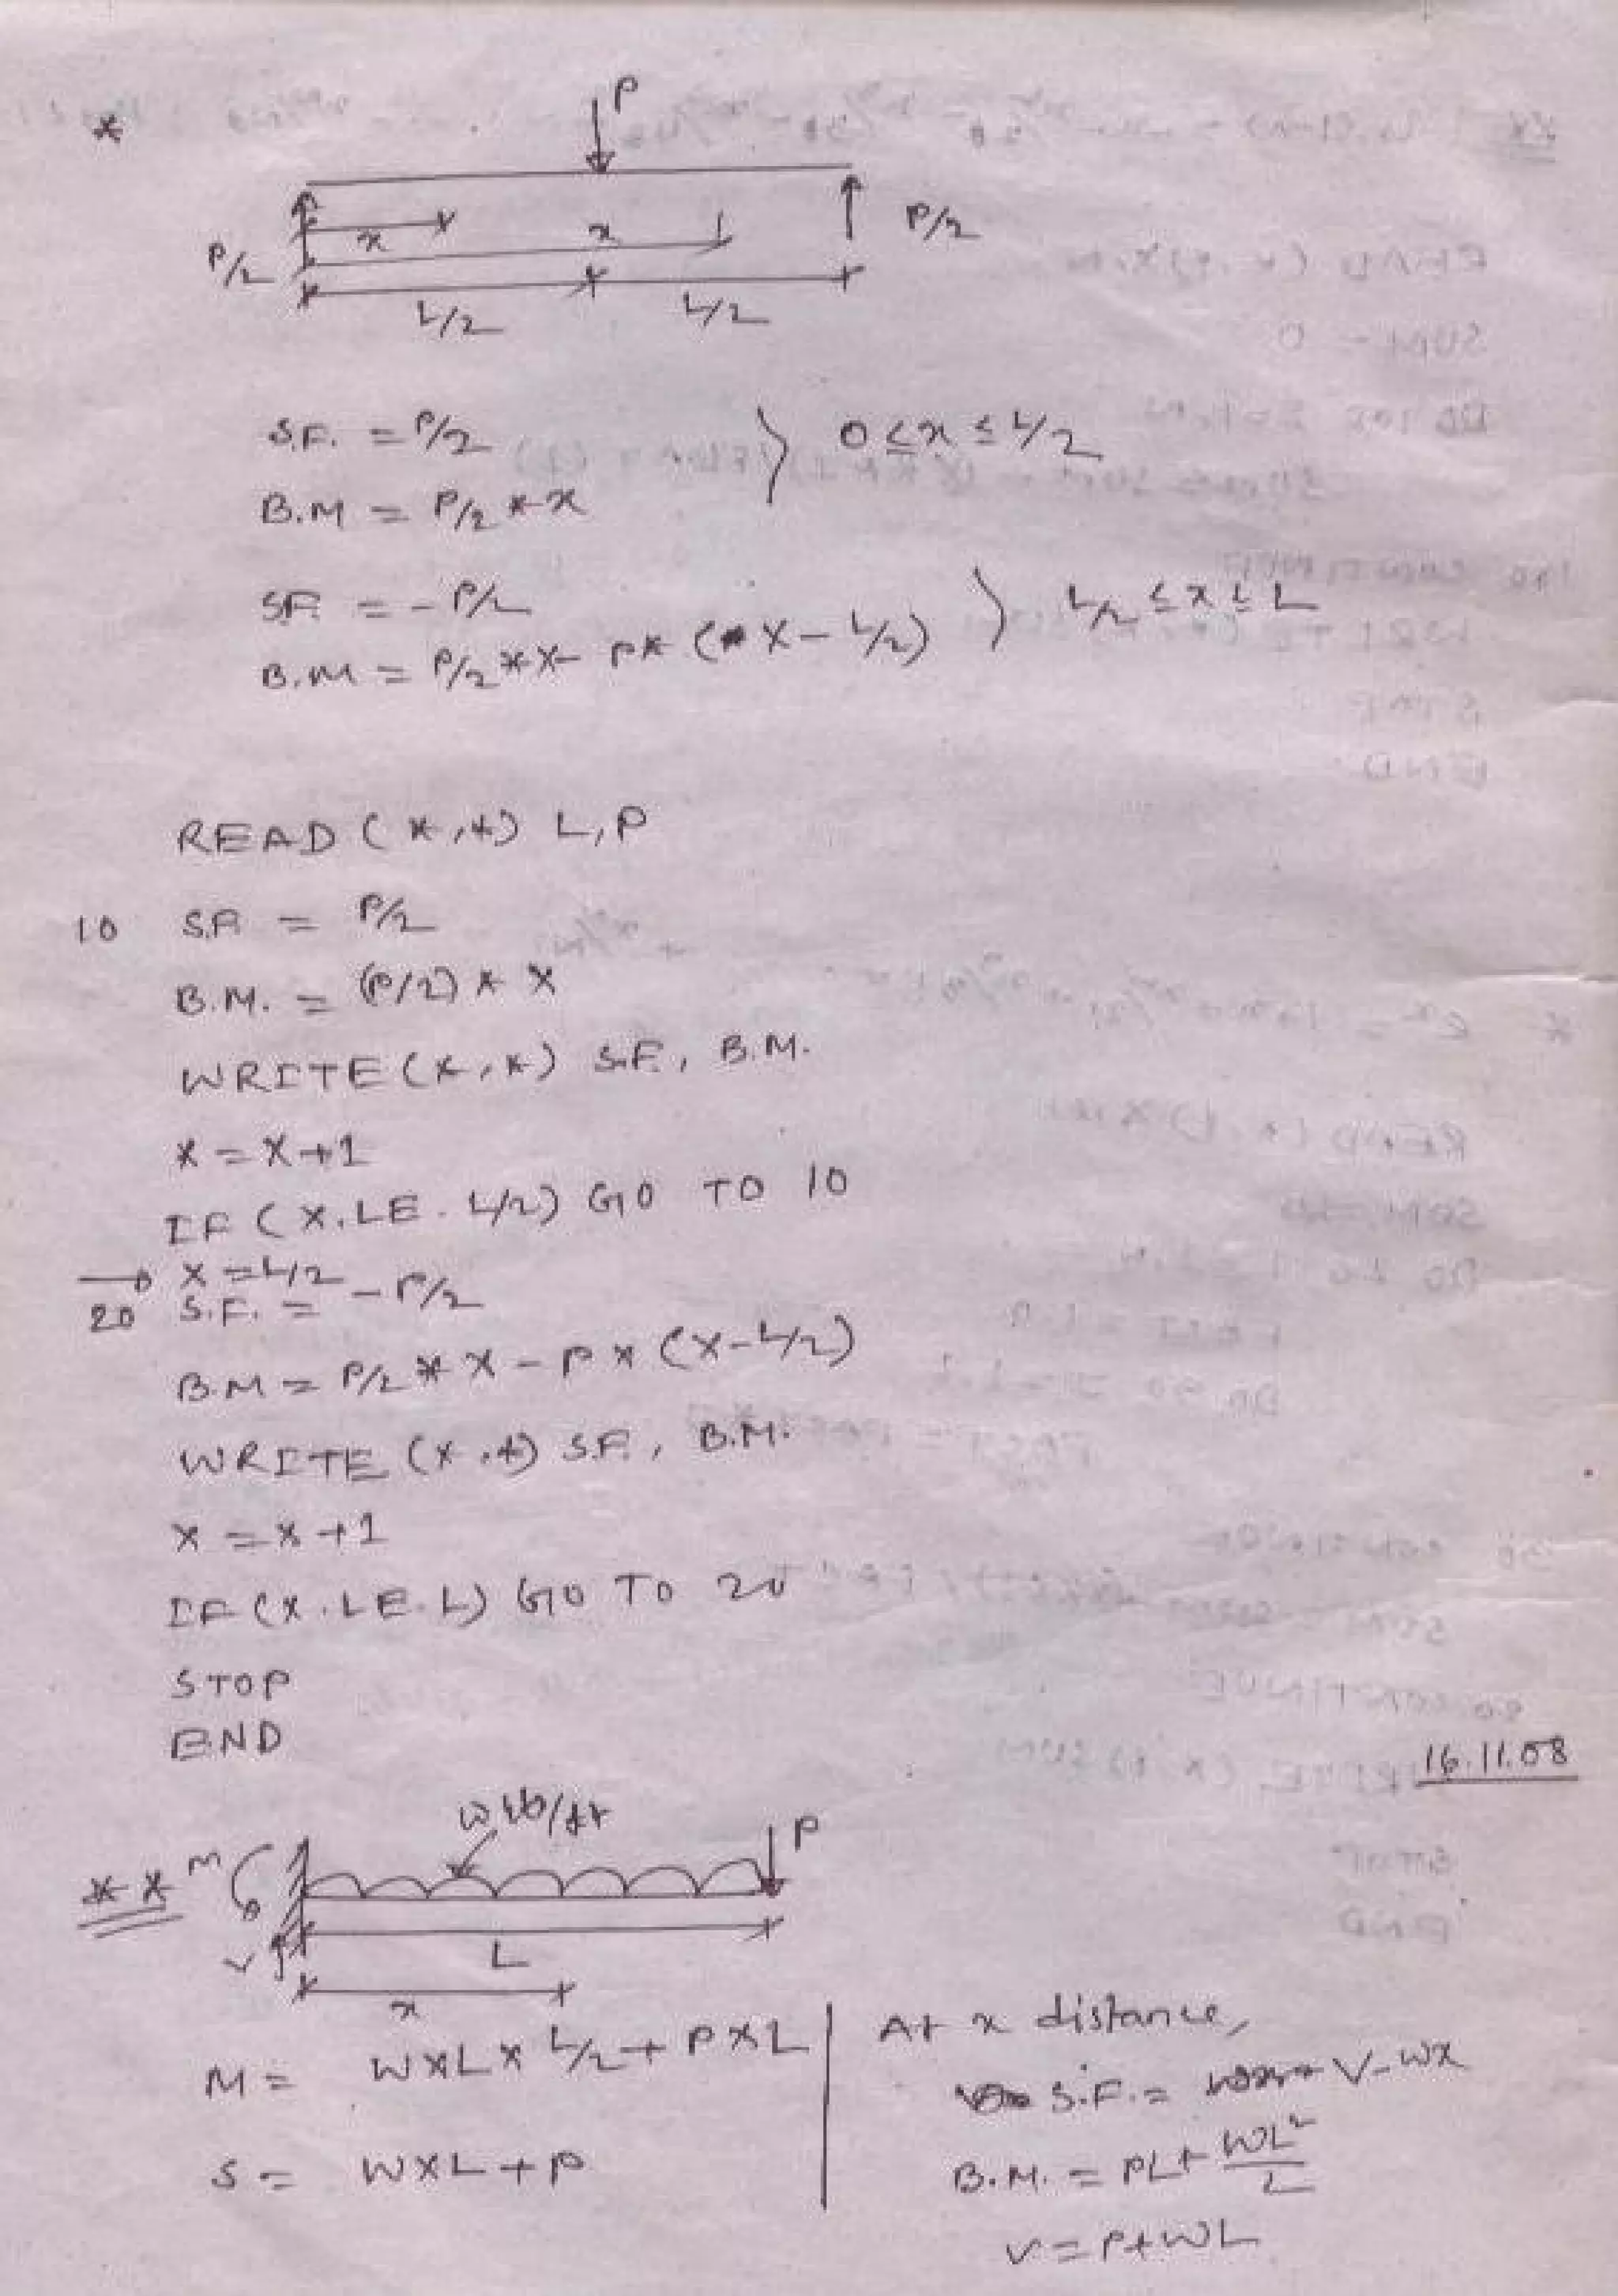 *
P
P/2
x
x
P/2
L/2
L/2
S.F. = P/2
0 ≤ x ≤ L/2
B.M = P/2 * x
S.F. = - P/2
L/2 ≤ x ≤ L
B.M = P/2 * X - P * (X - L/2)
READ (*,*) L, P
10 S.F. = P/2
B.M. = (P/2) * X
WRITE (*,*) S.F., B.M.
X = X+1
IF (X.LE. L/2) GO TO 10
→ X = L/2
20 S.F. = - P/2
B.M = P/2 * X - P * (X - L/2)
WRITE (*,*) S.F., B.M.
X = X+1
IF (X.LE.L) GO TO 20
STOP
END
16.11.08
W lb/ft
P
** M
V
L
x
M = W*L* L/2 + P*L
S = W*L + P
At x distance,
S.F. = V - Wx
B.M. = PL + WL²/2
V = P+WL